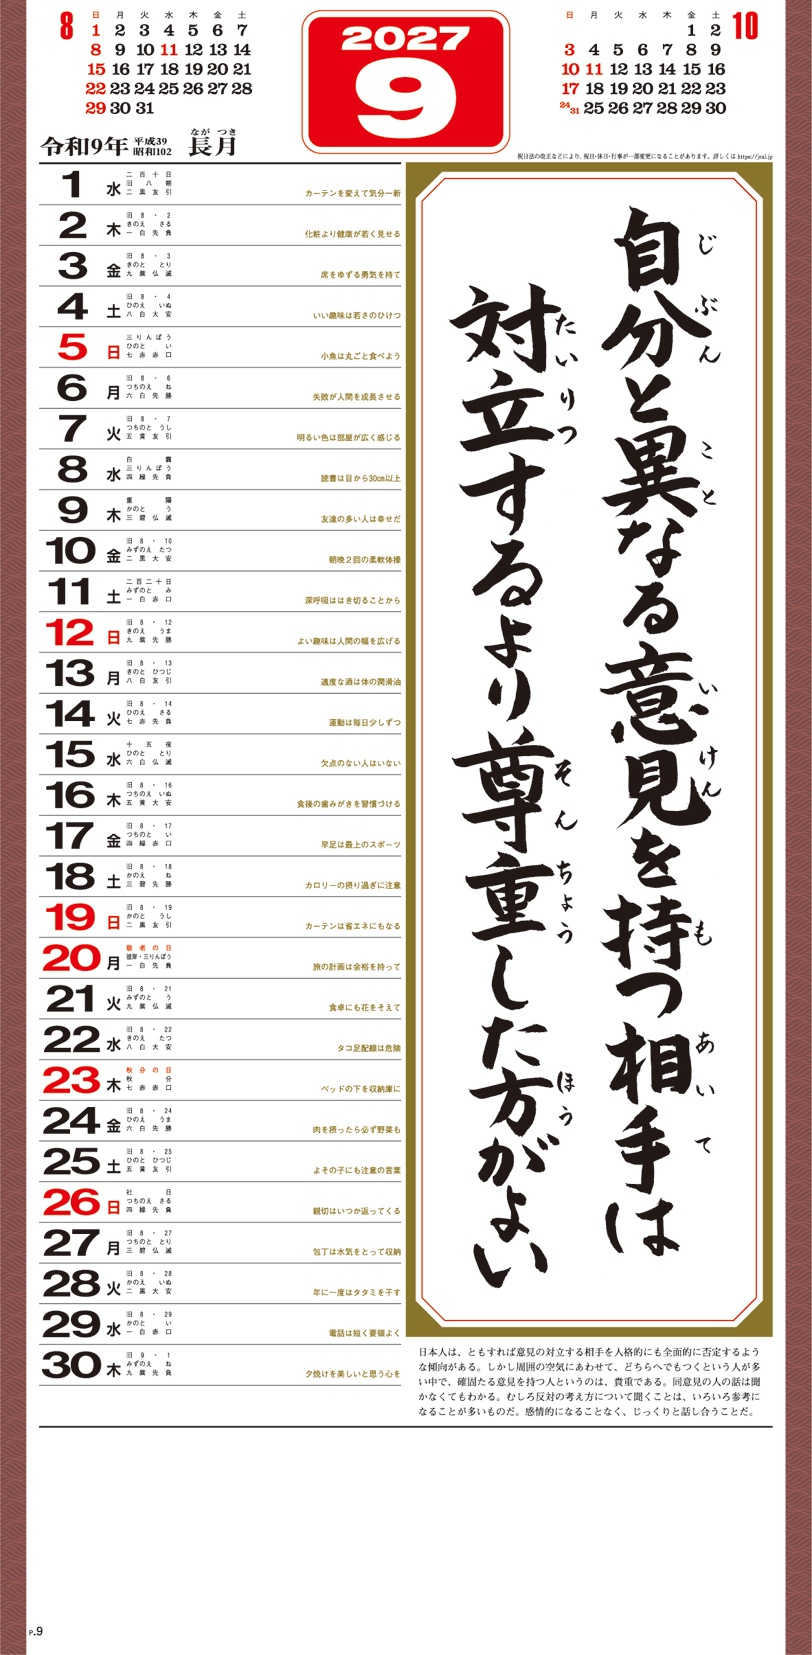 8
日 月 火 水 木 金 土
1 2 3 4 5 6 7
8 9 10 11 12 13 14
15 16 17 18 19 20 21
22 23 24 25 26 27 28
29 30 31
2027
9
10
日 月 火 水 木 金 土
1 2
3 4 5 6 7 8 9
10 11 12 13 14 15 16
17 18 19 20 21 22 23
24/31 25 26 27 28 29 30
令和9年 平成39 昭和102 長月 ながつき
祝日法の改正などにより、祝日・休日・行事が一部変更になることがあります。詳しくは https://jcal.jp
1 水 二百十日 旧八朔 二黒友引 カーテンを変えて気分一新
2 木 旧8・2 きのえ さる 一白先負 化粧より健康が若く見せる
3 金 旧8・3 きのと とり 九紫仏滅 席をゆずる勇気を持て
4 土 旧8・4 ひのえ いぬ 八白大安 いい趣味は若さのひけつ
5 日 三りんぼう ひのと い 七赤赤口 小魚は丸ごと食べよう
6 月 旧8・6 つちのえ ね 六白先勝 失敗が人間を成長させる
7 火 旧8・7 つちのと うし 五黄友引 明るい色は部屋が広く感じる
8 水 白露 三りんぼう 四緑先負 読書は目から30㎝以上
9 木 重陽 かのと う 三碧仏滅 友達の多い人は幸せだ
10 金 旧8・10 みずのえ たつ 二黒大安 朝晩2回の柔軟体操
11 土 二百二十日 みずのと み 一白赤口 深呼吸ははき切ることから
12 日 旧8・12 きのえ うま 九紫先勝 よい趣味は人間の幅を広げる
13 月 旧8・13 きのと ひつじ 八白友引 適度な酒は体の潤滑油
14 火 旧8・14 ひのえ さる 七赤先負 運動は毎日少しずつ
15 水 十五夜 ひのと とり 六白仏滅 欠点のない人はいない
16 木 旧8・16 つちのえ いぬ 五黄大安 食後の歯みがきを習慣づける
17 金 旧8・17 つちのと い 四緑赤口 早足は最上のスポーツ
18 土 旧8・18 かのえ ね 三碧先勝 カロリーの摂り過ぎに注意
19 日 旧8・19 かのと うし 二黒友引 カーテンは省エネにもなる
20 月 敬老の日 彼岸・三りんぼう 一白先負 旅の計画は余裕を持って
21 火 旧8・21 みずのと う 九紫仏滅 食卓にも花をそえて
22 水 旧8・22 きのえ たつ 八白大安 タコ足配線は危険
23 木 秋分の日 秋分 七赤赤口 ベッドの下を収納庫に
24 金 旧8・24 ひのえ うま 六白先勝 肉を摂ったら必ず野菜も
25 土 旧8・25 ひのと ひつじ 五黄友引 よその子にも注意の言葉
26 日 社日 つちのえ さる 四緑先負 親切はいつか返ってくる
27 月 旧8・27 つちのと とり 三碧仏滅 包丁は水気をとって収納
28 火 旧8・28 かのえ いぬ 二黒大安 年に一度はタタミを干す
29 水 旧8・29 かのと い 一白赤口 電話は短く要領よく
30 木 旧9・1 みずのえ ね 九紫先負 夕焼けを美しいと思う心を
自分と異なる意見を持つ相手は
じぶん こと いけん も あいて
対立するより尊重した方がよい
たいりつ そんちょう ほう
日本人は、ともすれば意見の対立する相手を人格的にも全面的に否定するよう
な傾向がある。しかし周囲の空気にあわせて、どちらへでもつくという人が多
い中で、確固たる意見を持つ人というのは、貴重である。同意見の人の話は聞
かなくてもわかる。むしろ反対の考え方について聞くことは、いろいろ参考に
なることが多いものだ。感情的になることなく、じっくりと話し合うことだ。
P.9